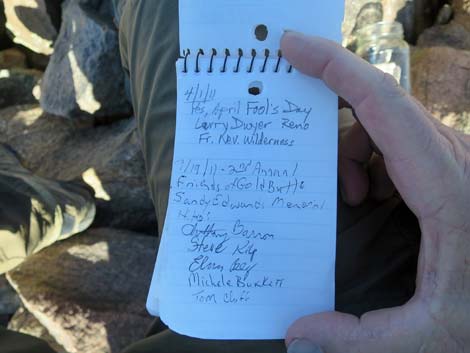 4/1/11
Yes, April Fool's Day
Larry Dwyer Reno
Fr. Nev. Wilderness
/19/11 - 2nd Annual
Friends of Gold Butte
Sandy Edwards
Hike!
Steve
Michele Burkett
Tom